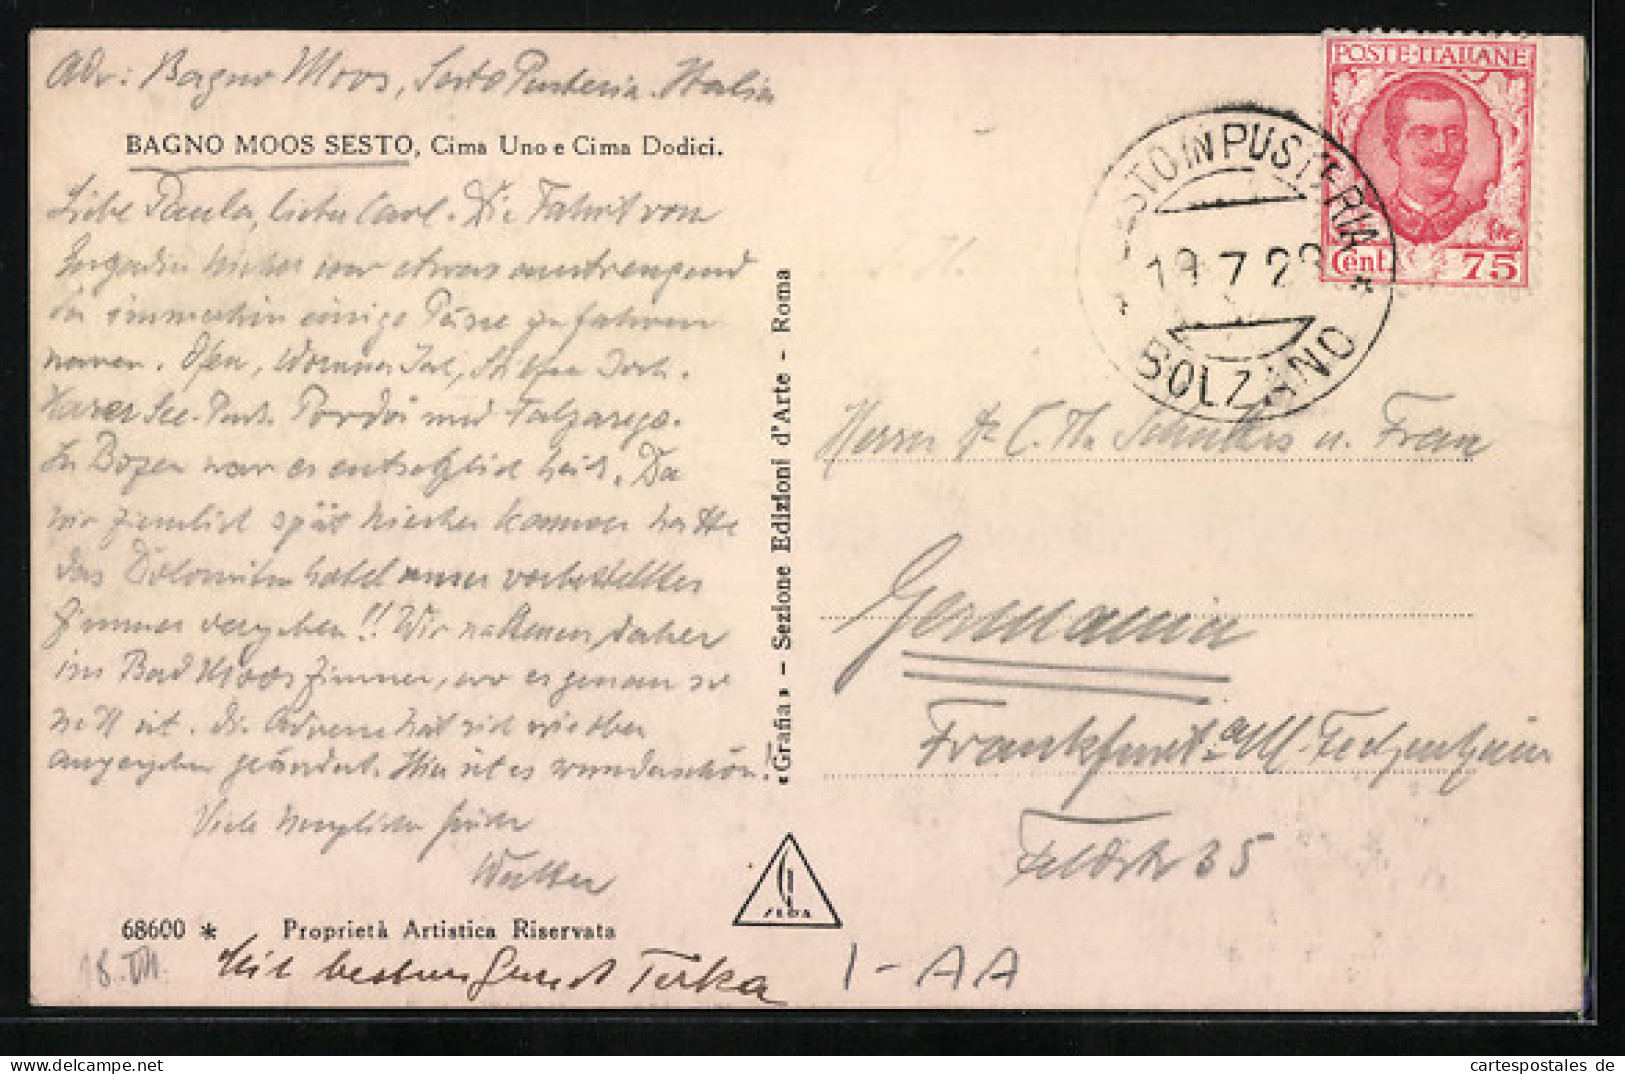 Adr: Bagno Moos, Sesto Pusteria. Italia
BAGNO MOOS SESTO, Cima Uno e Cima Dodici.
Liebe Paula, lieber Carl. Die Fahrt von
hierher war etwas anstrengend
da immerhin einige Pässe zu fahren
waren. Ofen, Joch.
Karer See. Pordoi und Falzarego.
In Bozen war es entsetzlich heiß. Da
wir ziemlich spät hierher kamen hatte
das Dolomitenhotel unser vorbestelltes
Zimmer vergeben!! Wir nahmen daher
im Bad Moos Zimmer, wo es genau so
nett ist. Die Adresse hat sich wie oben
angegeben geändert. Hier ist es wunderschön.
Viele herzliche Grüße
Walter
68600 * Proprietà Artistica Riservata
18. VII.
Mit besten Gruß
«Grafia» - Sezione Edizioni d'Arte - Roma
SEDA
I - AA
POSTE ITALIANE
Cent. 75
SESTO IN PUSTERIA
19 7 29
BOLZANO
Herrn Dr C. Th. u. Frau
Germania
Frankfurt a/M.
Feldstr 35